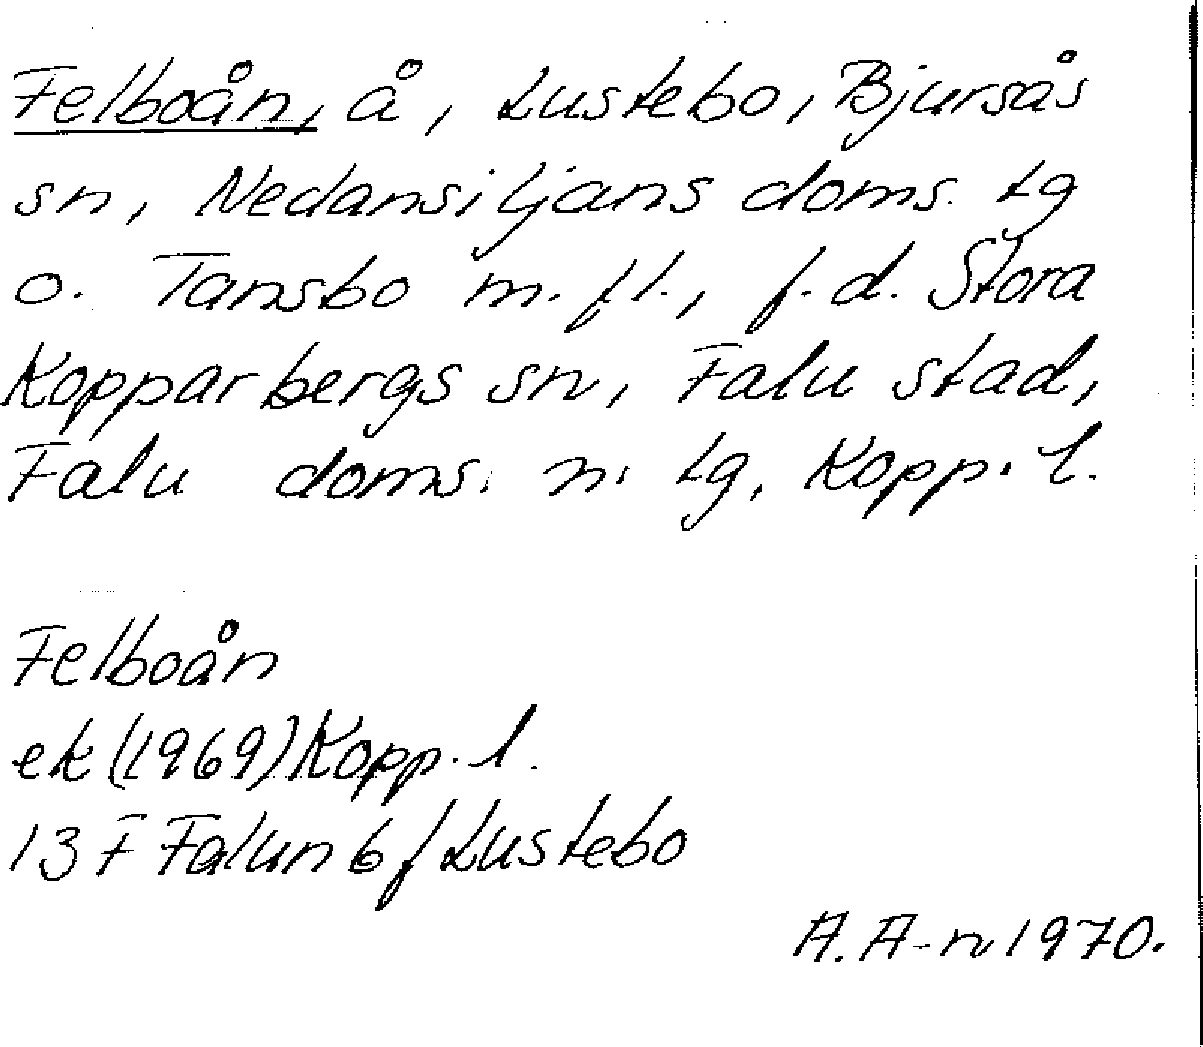 Felboån, å, Lustebo, Bjursås
sn, Nedansiljans doms. tg
o. Tansbo m.fl., f.d. Stora
Kopparbergs sn, Falu stad,
Falu doms. n. tg, Kopp. l.
Felboån
ek (1969) Kopp. l.
13 F Falun 6 f Lustebo
A. A-n 1970.